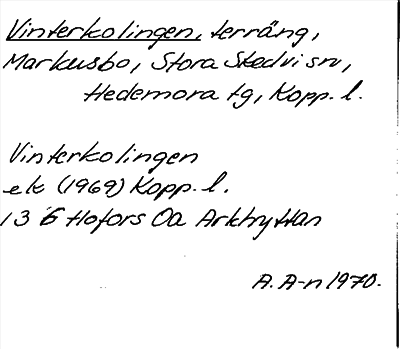 Vinterkolingen, terräng,
Markusbo, Stora Skedvi sn,
Hedemora tg, Kopp. l.
Vinterkolingen
ek (1969) Kopp. l.
13 G Hofors 0a Arkhyttan
A. A-n 1970.